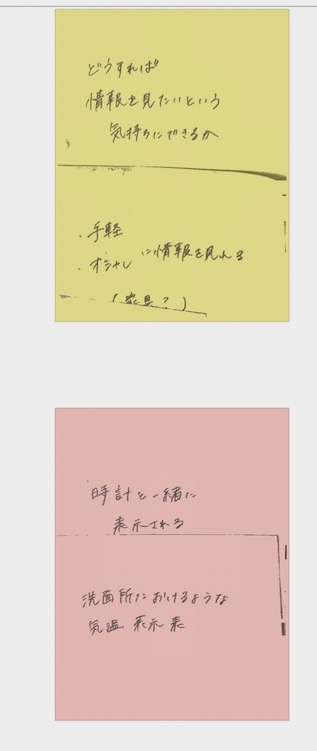 どうすれば
情報を見たいという
気持ちにできるか
・手軽
・オシャレ に情報を見れる
(家具?)
時計と一緒に
表示される
洗面所におけるような
気温 表示 表